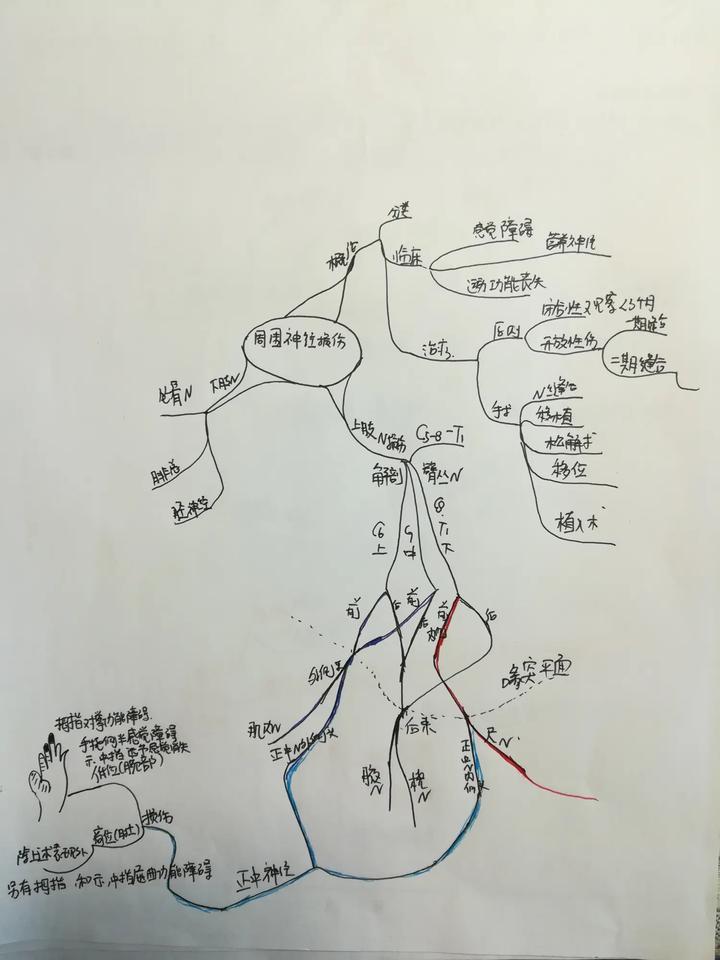 分类
概论
临床
感觉障碍
运动功能丧失
治疗
原则
闭合性 观察<3个月
开放性伤
一期缝合
二期缝合
手术
N缝合
移植
松解术
移位
植入术
周围神经损伤
下肢N
坐骨N
腓总
胫神经
上肢N损伤
C5-8-T1
解剖
臂丛N
C6
上
C7
中
C8
T1
下
前
后
前
后
前
后
外侧束
喙突平面
肌皮N
正中N外侧头
后束
腋N
桡N
正中N内侧
尺N
拇指对掌功能障碍.
手桡侧半感觉障碍
示.中指远节感觉消失
低位(腕部)
损伤
高位(肘上)
除上述表现外
另有拇指.和示.中指屈曲功能障碍
正中神经